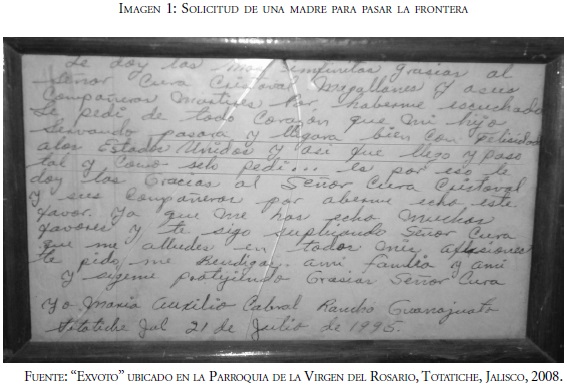 IMAGEN 1: SOLICITUD DE UNA MADRE PARA PASAR LA FRONTERA
Le doy las infinitas grasias al
Señor Cura Cristoval Magallanes y asus
Compañeros Martires Por, haberme escuchado
Le pedi de todo Corazon que mi hijo
Servando pasara y llegara bien con Felisidad
alos Estados Unidos y asi fue llego y paso
tal y Como selo pedi... es por eso le
doy las Gracias al Señor Cura Cristoval
y sus compañeros por aberme echo este
favor. Ya que me has echo muchos
favores y te sigo suplicando Señor Cura
que me alludes en todas mis aflisiones
te pido, me Bendigas ami familia y ami
y sigeme protejiendo Grasias Señor Cura
Yo Maria Auxilio Cabral Rancho Guanajuato
Totatiche Jal 21 de Julio de 1995.
FUENTE: “EXVOTO” UBICADO EN LA PARROQUIA DE LA VIRGEN DEL ROSARIO, TOTATICHE, JALISCO, 2008.